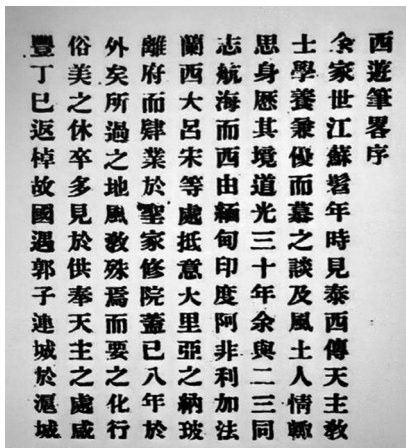 西遊筆畧序
余家世江蘇髫年時見泰西傳天主教
士學養兼優而慕之談及風土人情輙
思身歷其境道光三十年余與二三同
志航海而西由緬甸印度阿非利加法
蘭西大呂宋等處抵意大里亞之納玻
離府而肄業於聖家修院蓋已八年於
外矣所過之地風教殊焉而要之化行
俗美之休卒多見於供奉天主之處咸
豐丁巳返棹故國遇郭子連城於滬城